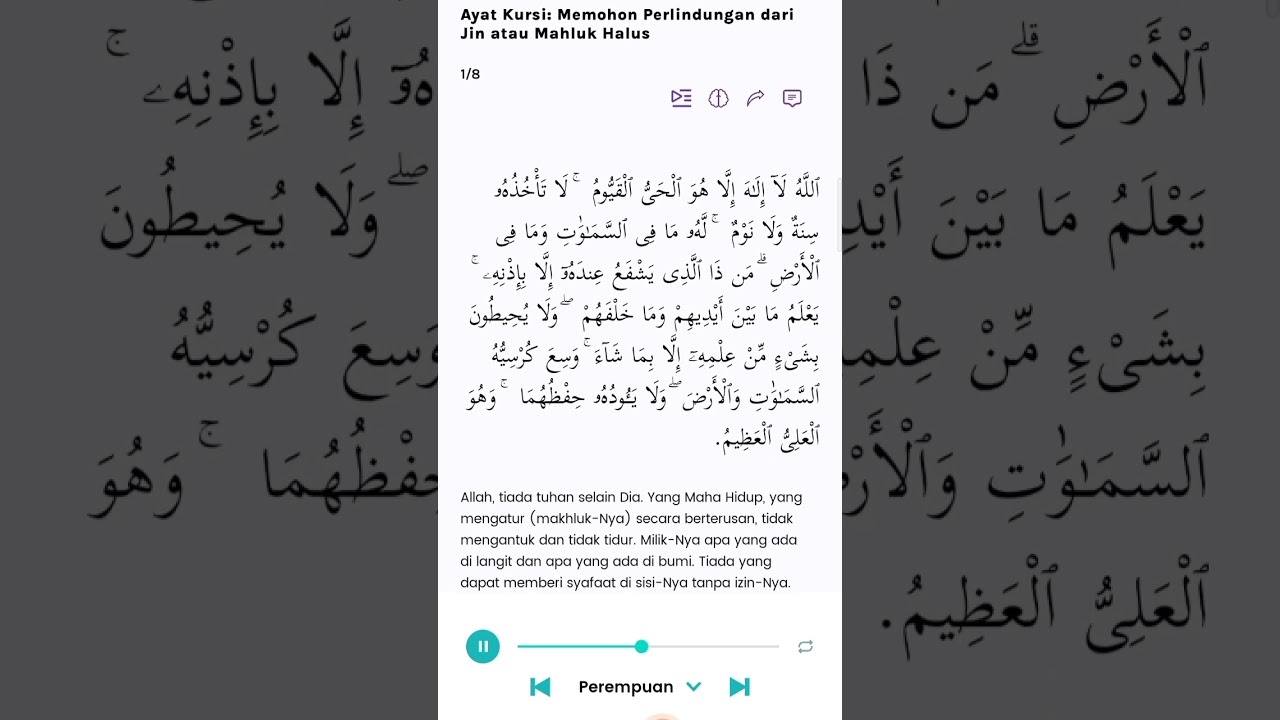 Ayat Kursi: Memohon Perlindungan dari
Jin atau Mahluk Halus
1/8
ٱللَّهُ لَآ إِلَٰهَ إِلَّا هُوَ ٱلْحَىُّ ٱلْقَيُّومُ ۚ لَا تَأْخُذُهُۥ
سِنَةٌ وَلَا نَوْمٌ ۚ لَّهُۥ مَا فِى ٱلسَّمَٰوَٰتِ وَمَا فِى
ٱلْأَرْضِ ۗ مَن ذَا ٱلَّذِى يَشْفَعُ عِندَهُۥٓ إِلَّا بِإِذْنِهِۦ ۚ
يَعْلَمُ مَا بَيْنَ أَيْدِيهِمْ وَمَا خَلْفَهُمْ ۖ وَلَا يُحِيطُونَ
بِشَىْءٍ مِّنْ عِلْمِهِۦٓ إِلَّا بِمَا شَآءَ ۚ وَسِعَ كُرْسِيُّهُ
ٱلسَّمَٰوَٰتِ وَٱلْأَرْضَ ۖ وَلَا يَـُٔودُهُۥ حِفْظُهُمَا ۚ وَهُوَ
ٱلْعَلِىُّ ٱلْعَظِيمُ.
Allah, tiada tuhan selain Dia. Yang Maha Hidup, yang
mengatur (makhluk-Nya) secara berterusan, tidak
mengantuk dan tidak tidur. Milik-Nya apa yang ada
di langit dan apa yang ada di bumi. Tiada yang
dapat memberi syafaat di sisi-Nya tanpa izin-Nya.
Perempuan